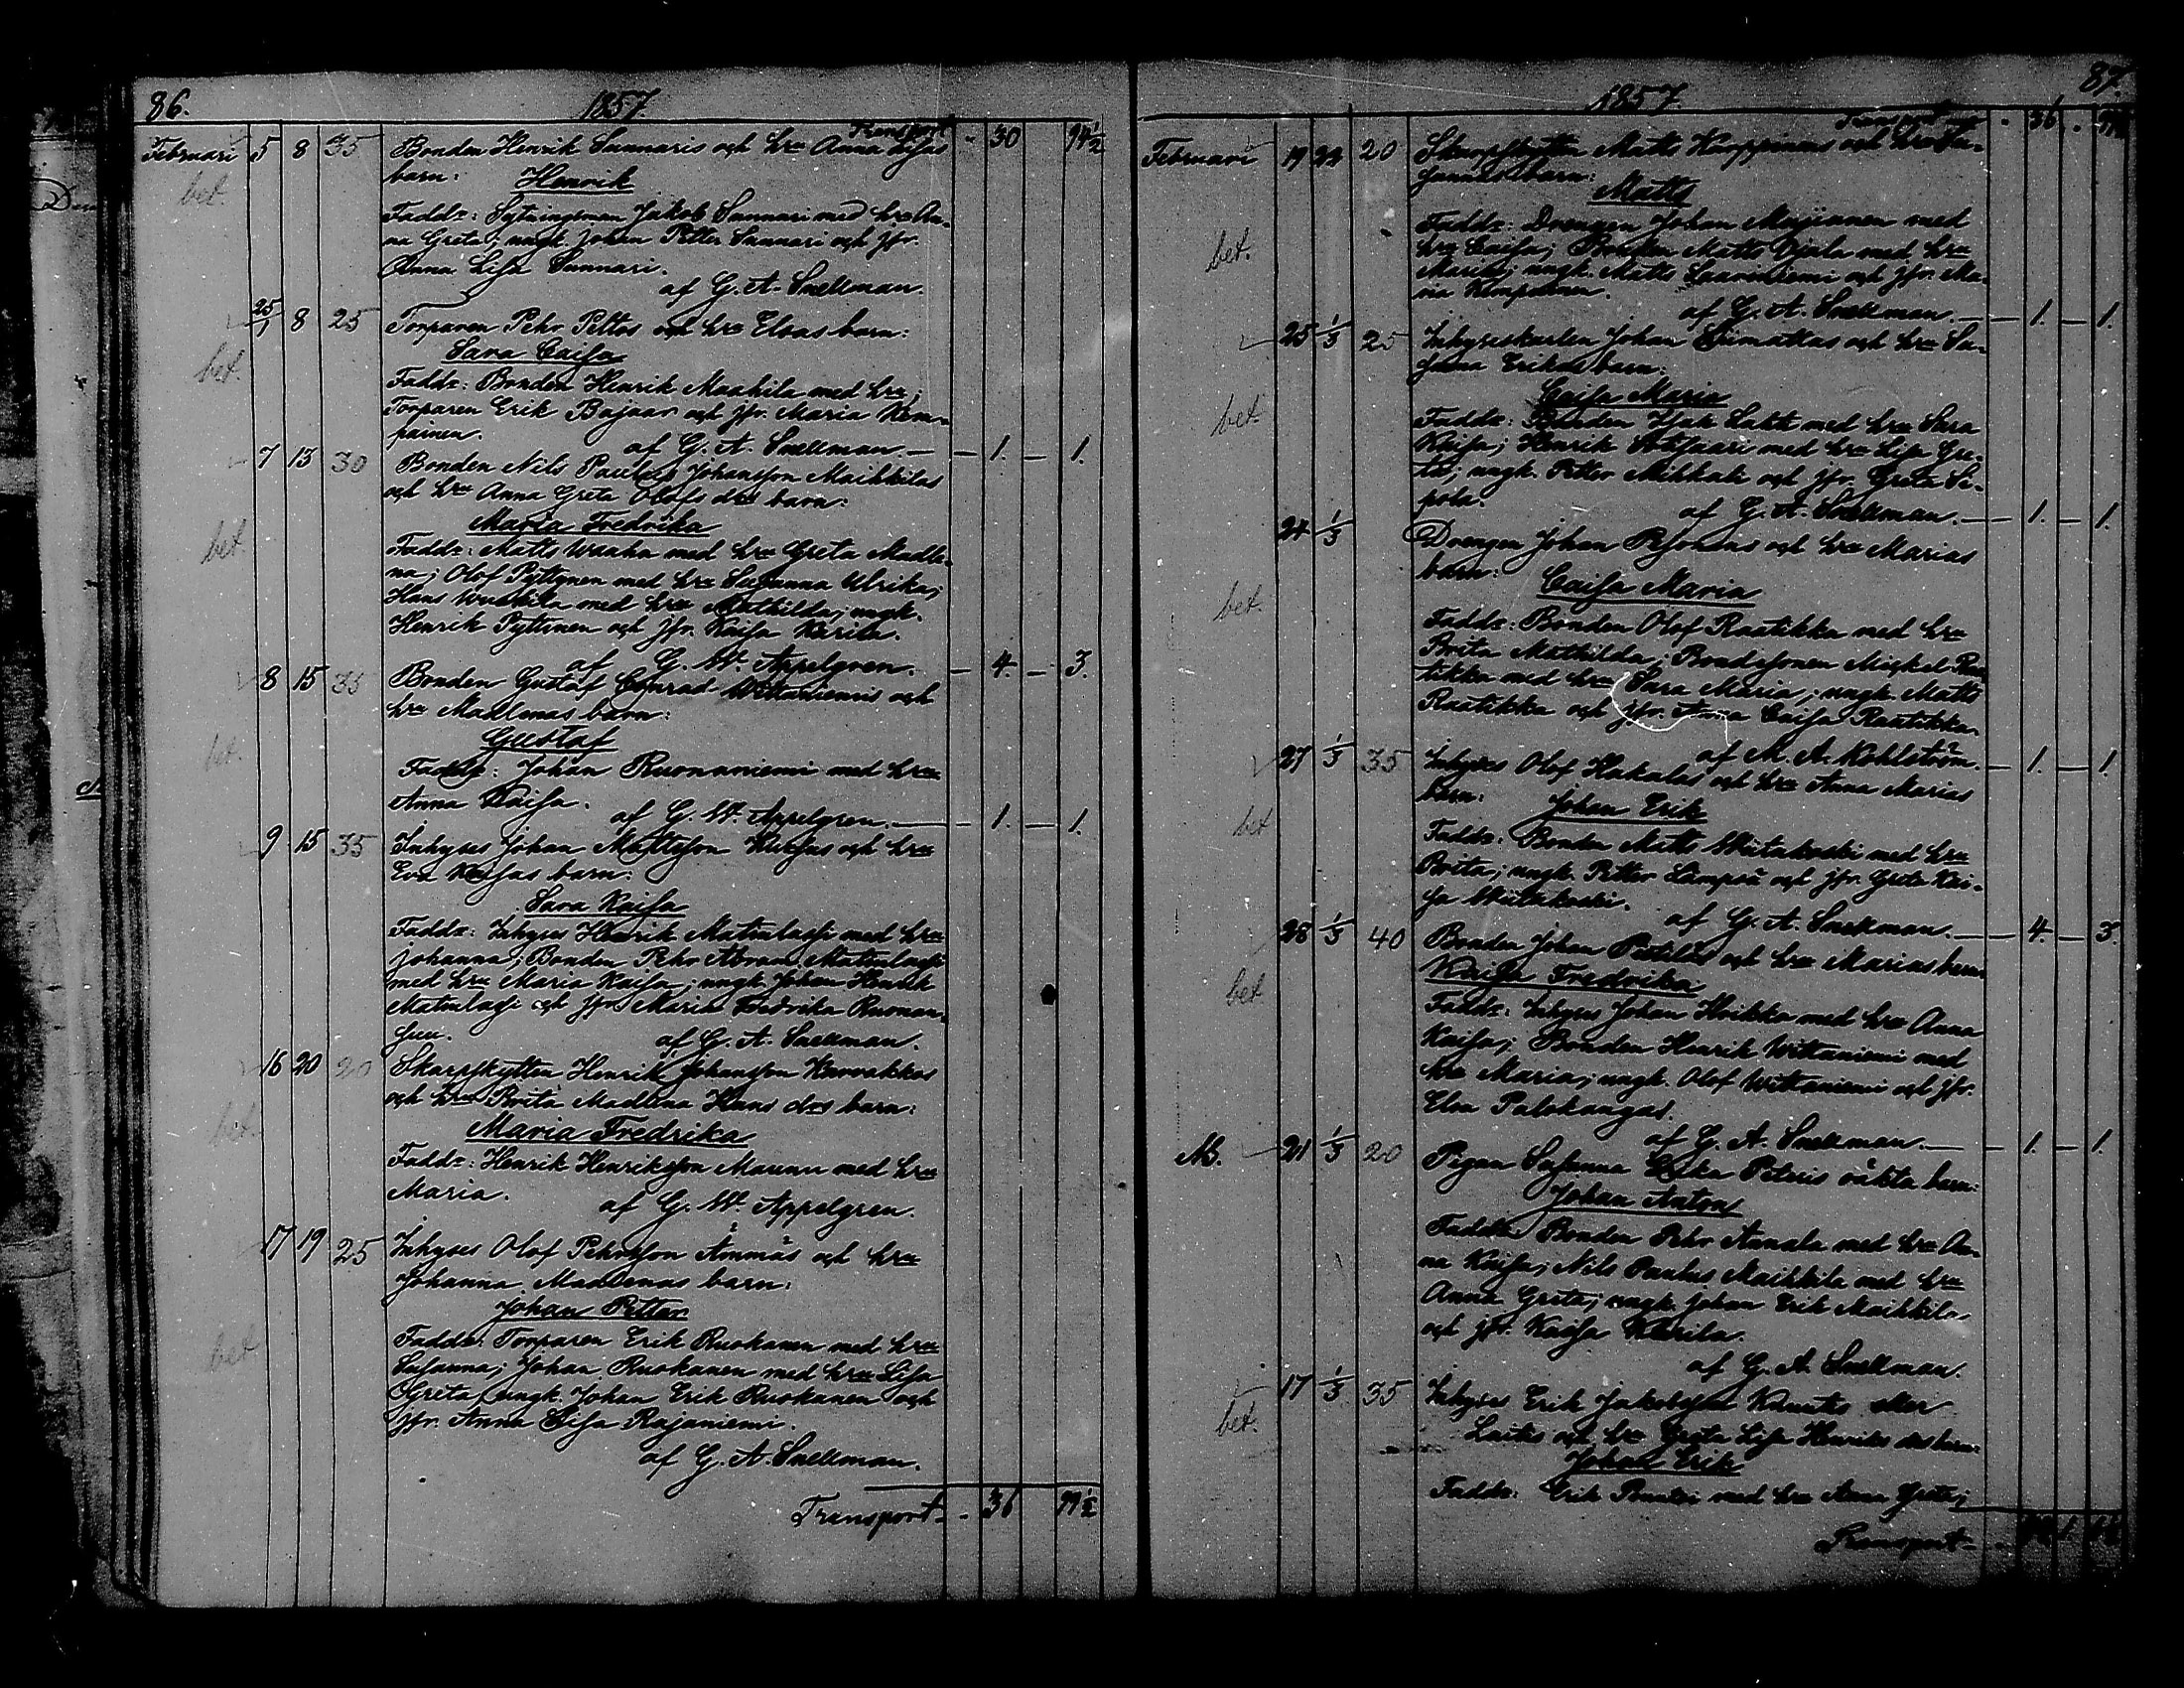 86. 1857.
Transport - 30 94½
Februari 5 8 35 Bonden Henrik Sunnaris och hru Anna Lisas
bet. barn: Henrik
Faddr: Sytningsman Jakob Sunnari med hru An-
na Greta; ungk. Johan Petter Sunnari och jfr.
Anna Lisa Sunnari.
af G. A. Snellman.
25/1 8 25 Torparen Pehr Pettas och hru Elsas barn:
bet. Sara Caisa
Faddr: Bonden Henrik Maahila med hru;
Torparen Erik Bajaar och jfr. Maria Kem-
painen. af G. A. Snellman. — 1. — 1.
7 13 30 Bonden Nils Paulus Johansson Maikkilas
och hru Anna Greta Olofs drs barn:
bet. Maria Fredrika
Faddr: Matts Waaha med hru Greta Madle-
na; Olof Pyttynen med hru Susanna Ulrika;
Hans med hru Mathilda; ungk.
Henrik Pyttynen och jfr. Kaisa Karila.
af G. W. Appelgren. — 4. — 3.
8 15 35 Bonden Gustaf Conrad Wittaniemis och
hru Madlenas barn:
bet. Gustaf
Faddr: Johan Ruonaniemi med hru
Anna Kaisa.
af G. W. Appelgren. — 1. — 1.
9 15 35 Inhyses Johan Mattsson och hru
Eva Kaisas barn:
Sara Kaisa
Faddr: Inhyses Henrik Matinlassi med hru
Johanna; Bonden Pehr Abram Matinlassi
med hru Maria Kaisa; ungk. Johan Henrik
Matinlassi och jfr Maria Fredrika Ruonan-
suu. af G. A. Snellman.
16 20 20 Skarpskytten Henrik Johansson Karvakkas
och hru Brita Madlena Hans drs barn:
bet. Maria Fredrika
Faddr: Henrik Henriksson Maunu med hru
Maria. af G. W. Appelgren.
17 19 25 Inhyses Olof Pehrsson Ämmäs och hru
Johanna Madlenas barn:
Johan Petter
bet Faddr: Torparen Erik Ruokanen med hru
Susanna; Johan Ruokanen med hru Lisa
Greta; ungk. Johan Erik Ruokanen och
jfr. Anna Lisa Rajaniemi.
af G. A. Snellman.
Transport - 36 99½
87.
1857
Transport - 36 99½
Februari 19 24 20 Skarpskytten Matts Karppinens och hru Su-
sannas barn:
Matts
bet. Faddr: Drengen Johan Majianen med
hru Caisa; Bonden Matts Ojala med hru
Maria; ungk. Matts Laariniemi och jfr. Ma-
ria Kempainen.
af G. A. Snellman. — 1. — 1.
25 1/3 25 Inhyseskarlen Johan Siimattas och hru Su-
sanna Eriks barn:
bet. Caisa Maria
Faddr: Bonden Isak Lakk med hru Sara
Kaisa; Henrik med hru Lisa Gre-
ta; ungk. Petter Mikkali och jfr. Greta Si-
pola. af G. A. Snellman. — 1. — 1.
24 1/3 Drengen Johan Pesonens och hru Marias
barn: Caisa Maria
bet. Faddr: Bonden Olof Raatikka med hru
Brita Mathilda; Bondesonen Mickel Raa-
tikka med hru Sara Maria; ungk. Matts
Raatikka och jfr. Anna Caisa Raatikka.
af M. A. Kohlström. — 1. — 1.
27 1/3 35 Inhyses Olof Hakalas och hru Anna Marias
bet barn: Johan Erik
Faddr: Bonden Matts Wiitakoski med hru
Brita; ungk. Petter Lämpsä och jfr. Greta Kai-
sa Wiitakoski.
af G. A. Snellman. — 4. — 3.
28 1/3 40 Bonden Johan Pietiläs och hru Marias barn
bet Kaisa Fredrika
Faddr: Inhyses Johan Hoikka med hru Anna
Kaisa; Bonden Henrik Wittaniemi med
hru Maria; ungk. Olof Wittaniemi och jfr.
Elsa Palokangas.
af G. A. Snellman. — 1. — 1.
NB. 21 1/3 20 Pigan Susanna Lovisa Peteris oäkta barn:
Johan Anton
Faddr: Bonden Pehr Annala med hru An-
na Kaisa; Nils Paulus Maikkila med hru
Anna Greta; ungk. Johan Erik Maikkila
och jfr. Kaisa Karila.
af G. A. Snellman.
17 1/3 35 Inhyses Erik Jakobsson eller
bet. Laitis och hru Greta Lisa Henriks drs barn:
Johan Erik
Faddr: Erik med hru Anna Greta;
Transport -